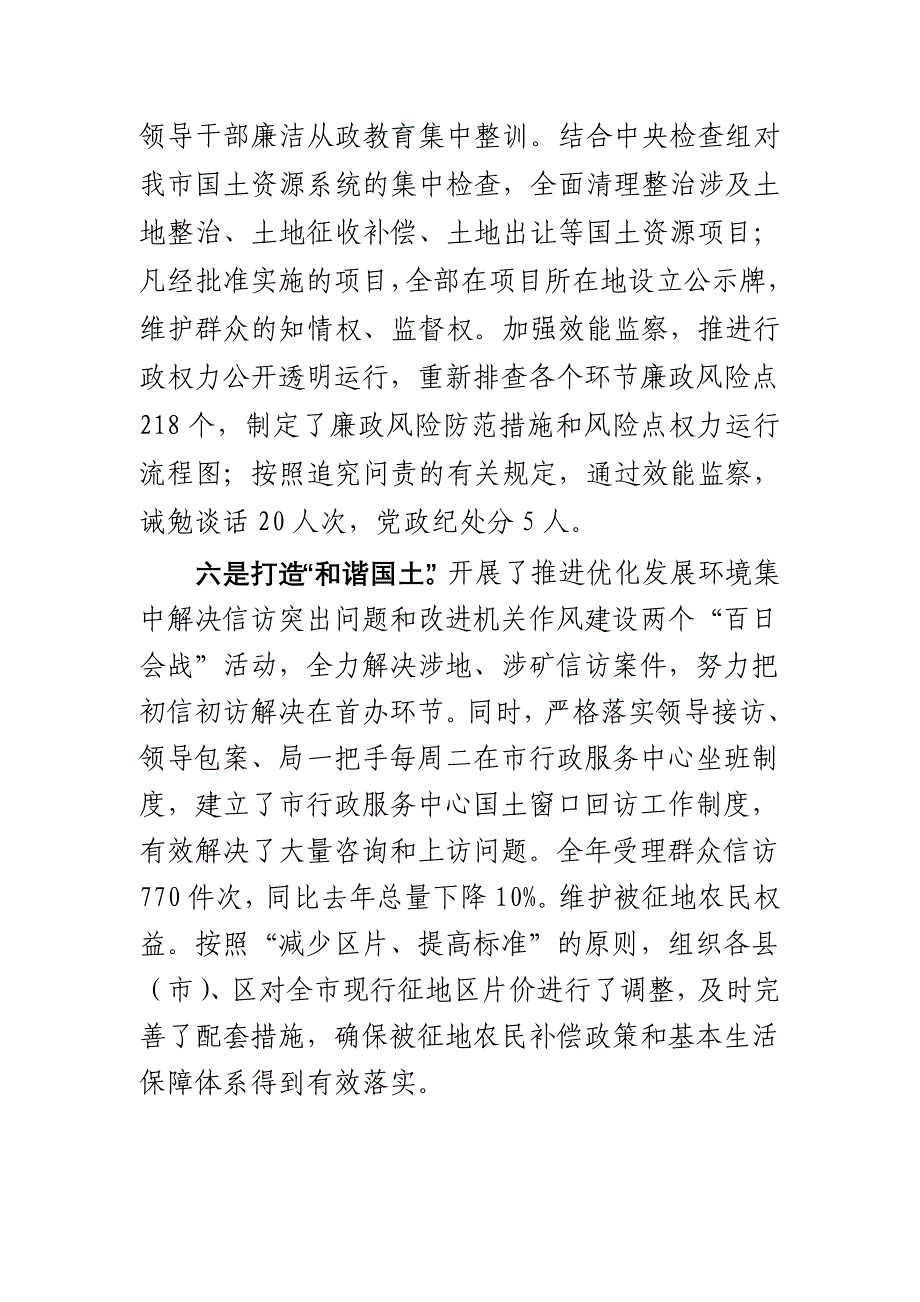 领导干部廉洁从政教育集中整训。结合中央检查组对
我市国土资源系统的集中检查，全面清理整治涉及土
地整治、土地征收补偿、土地出让等国土资源项目；
凡经批准实施的项目，全部在项目所在地设立公示牌，
维护群众的知情权、监督权。加强效能监察，推进行
政权力公开透明运行，重新排查各个环节廉政风险点
218 个，制定了廉政风险防范措施和风险点权力运行
流程图；按照追究问责的有关规定，通过效能监察，
诫勉谈话 20 人次，党政纪处分 5 人。
六是打造“和谐国土”。开展了推进优化发展环境集
中解决信访突出问题和改进机关作风建设两个“百日
会战”活动，全力解决涉地、涉矿信访案件，努力把
初信初访解决在首办环节。同时，严格落实领导接访、
领导包案、局一把手每周二在市行政服务中心坐班制
度，建立了市行政服务中心国土窗口回访工作制度，
有效解决了大量咨询和上访问题。全年受理群众信访
770 件次，同比去年总量下降 10%。维护被征地农民权
益。按照“减少区片、提高标准”的原则，组织各县
（市）、区对全市现行征地区片价进行了调整，及时完
善了配套措施，确保被征地农民补偿政策和基本生活
保障体系得到有效落实。